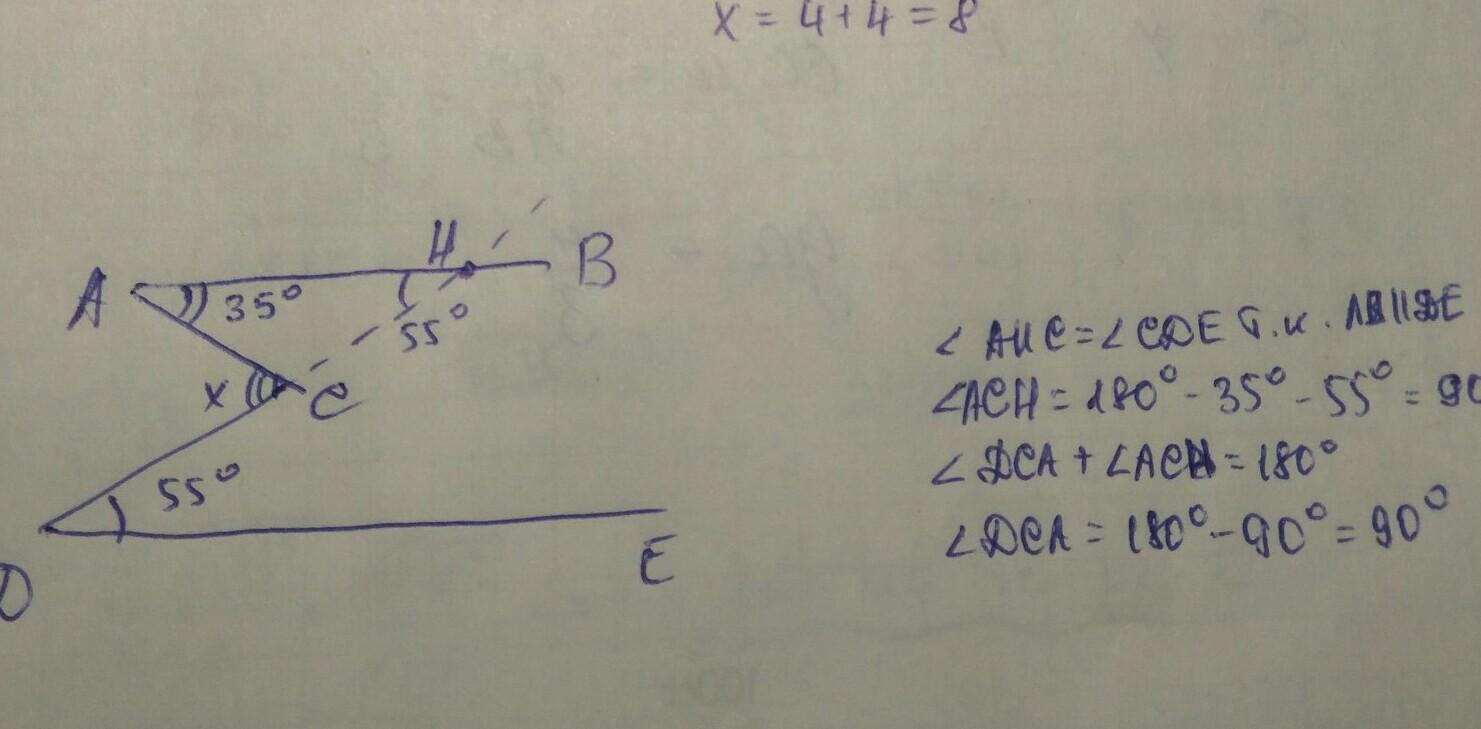 x = 4 + 4 = 8
H
B
A
35°
55°
x
C
55°
E
D
∠AHC = ∠CDE т.к. AB||DE
∠ACH = 180° - 35° - 55° = 90
∠DCA + ∠ACH = 180°
∠DCA = 180° - 90° = 90°